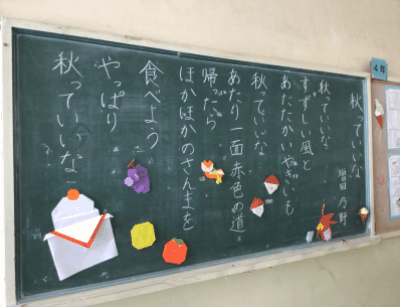 秋っていいな
増田
秋っていいな
すずしい風と
あたたかいやきいも
秋っていいな
あたり一面赤色の道
帰ったら
ほかほかのさんまを
食べよう
やっぱり
秋っていいな
4年